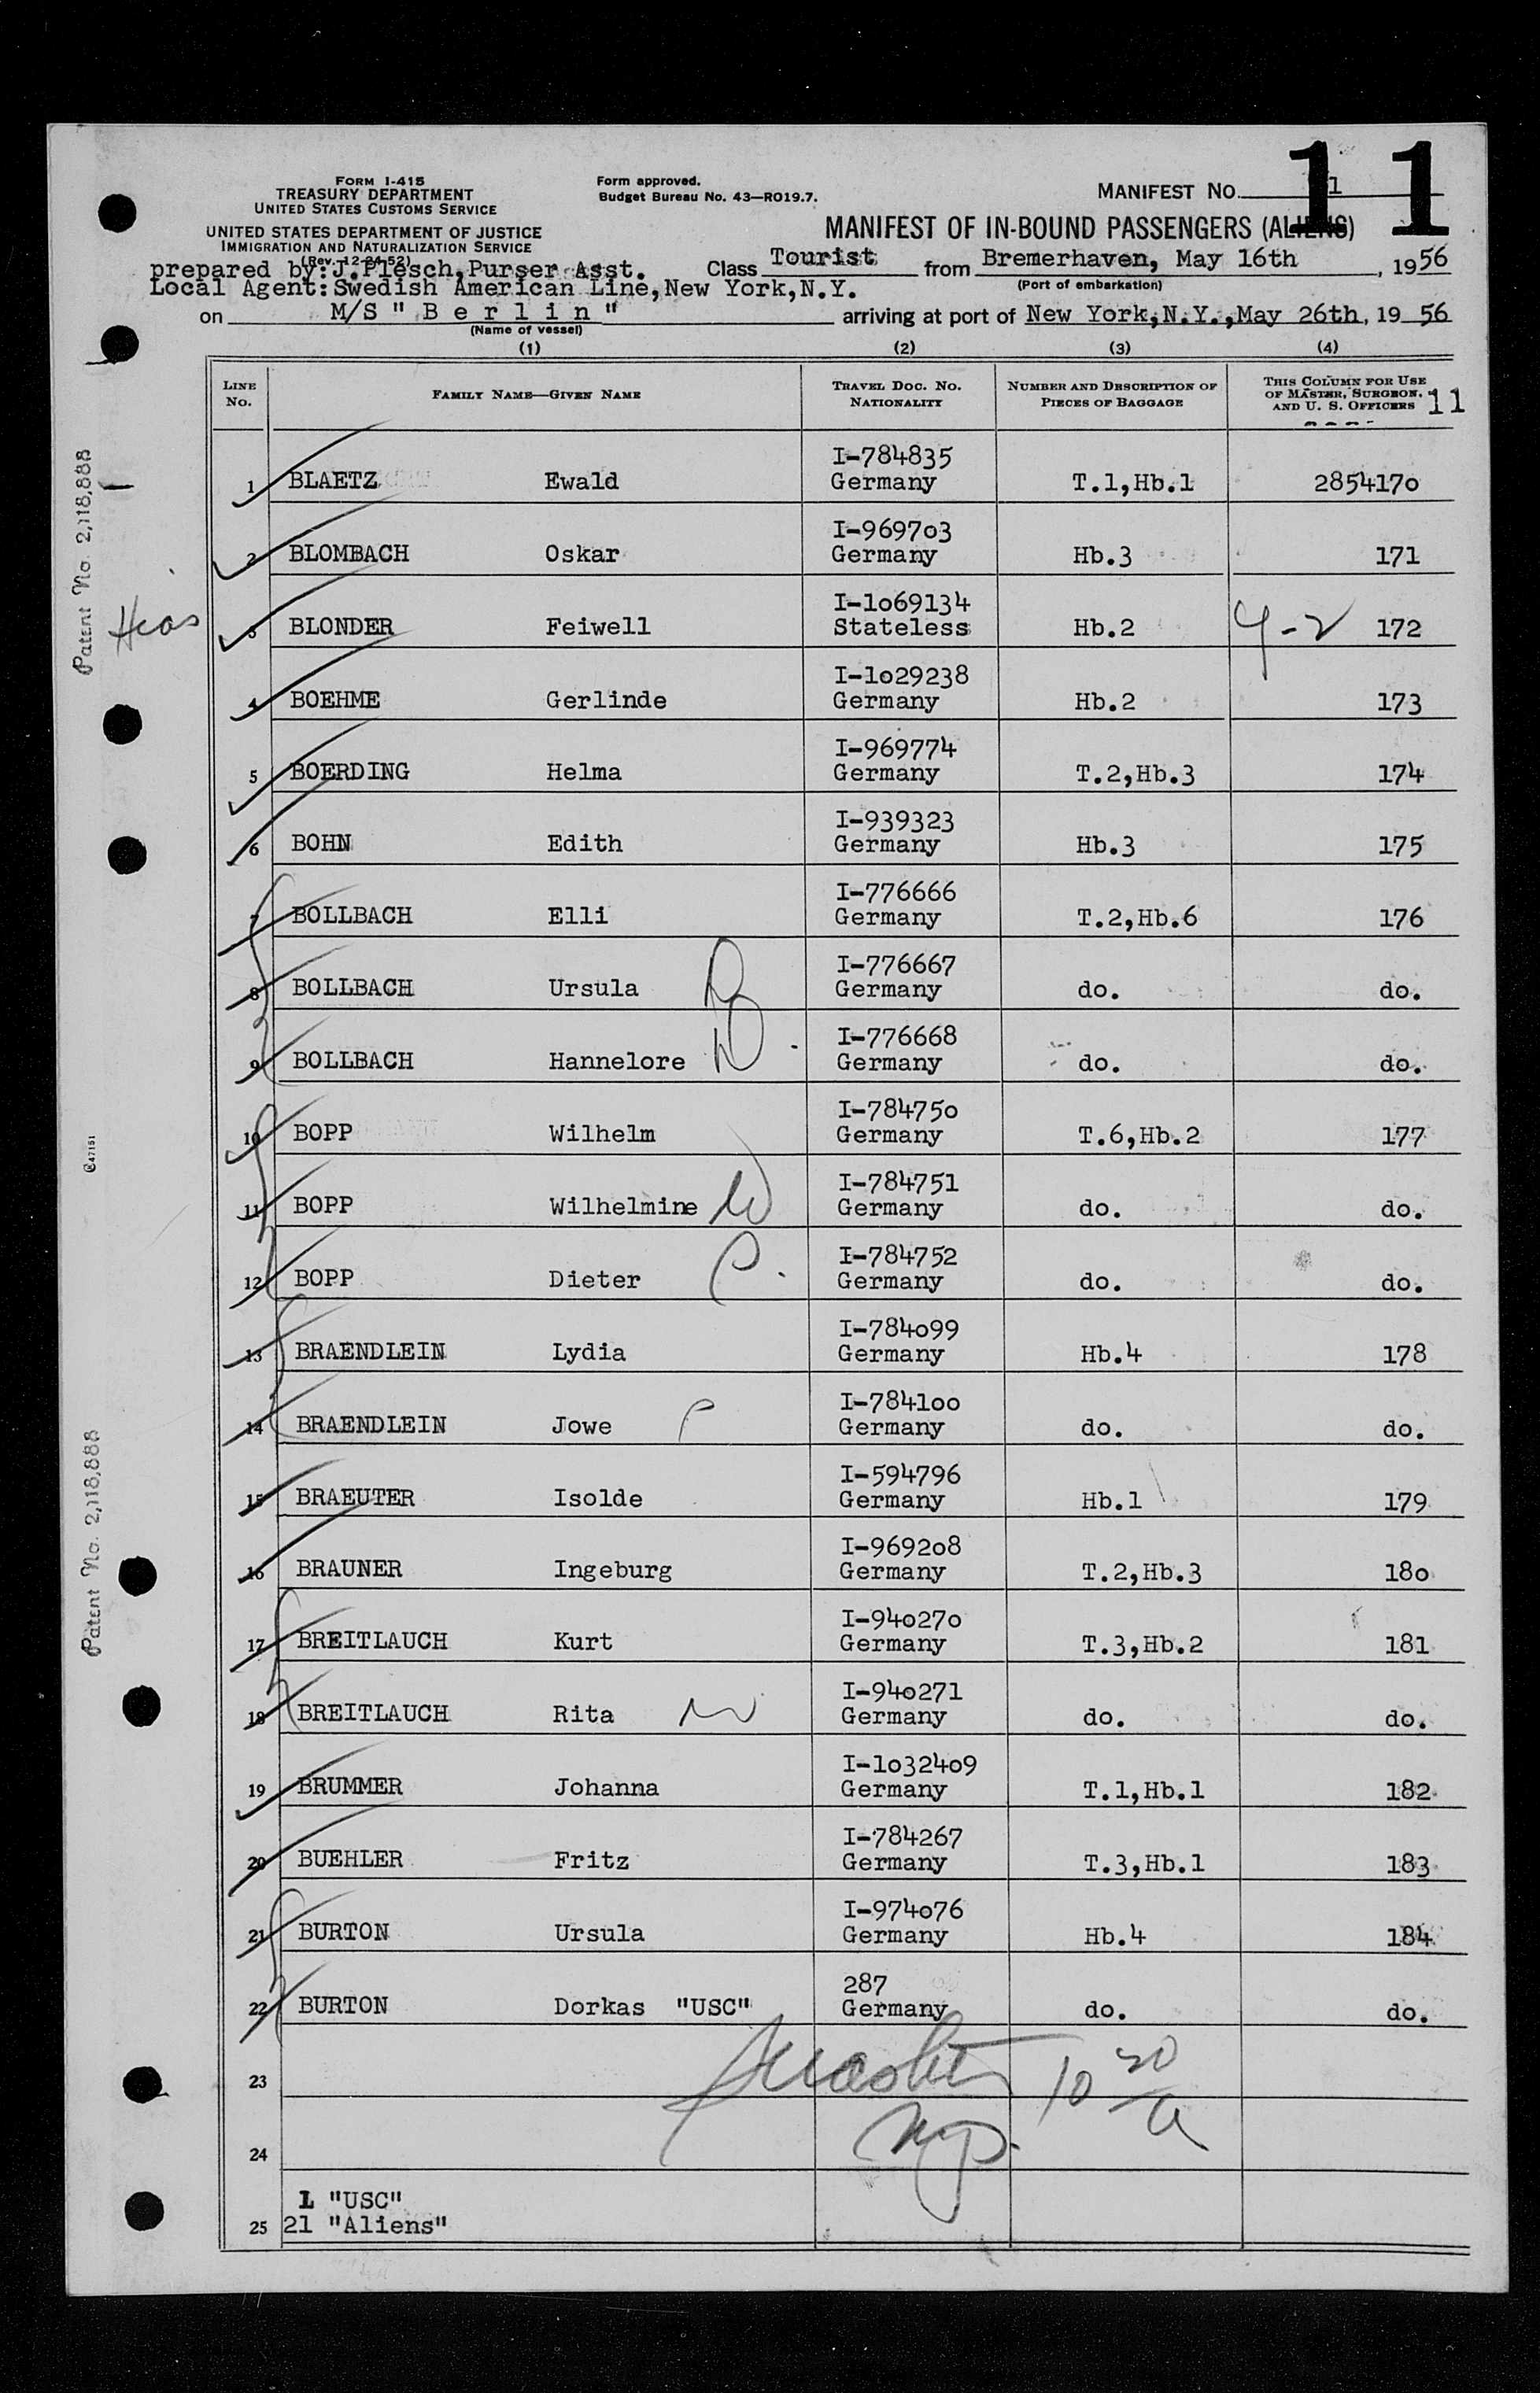 FORM I-415
TREASURY DEPARTMENT
UNITED STATES CUSTOMS SERVICE
UNITED STATES DEPARTMENT OF JUSTICE
IMMIGRATION AND NATURALIZATION SERVICE
(Rev. 12-24-52)
Form approved.
Budget Bureau No. 43—RO19.7.
MANIFEST NO. 1
11
MANIFEST OF IN-BOUND PASSENGERS (ALIENS)
prepared by:J.Plesch,Purser Asst. Class Tourist from Bremerhaven, May 16th, 1956
(Port of embarkation)
Local Agent:Swedish American Line,New York,N.Y.
on M/S " B e r l i n " arriving at port of New York,N.Y.,May 26th, 19 56
(Name of vessel)
(1) (2) (3) (4)
LINE NO. FAMILY NAME—GIVEN NAME TRAVEL DOC. NO. NATIONALITY NUMBER AND DESCRIPTION OF PIECES OF BAGGAGE THIS COLUMN FOR USE OF MASTER, SURGEON, AND U. S. OFFICERS 11
I-784835
1 BLAETZ Ewald Germany T.1,Hb.1 2854170
I-969703
2 BLOMBACH Oskar Germany Hb.3 171
I-1069134
Hias 3 BLONDER Feiwell Stateless Hb.2 172
I-1029238
4 BOEHME Gerlinde Germany Hb.2 173
I-969774
5 BOERDING Helma Germany T.2,Hb.3 174
I-939323
6 BOHN Edith Germany Hb.3 175
I-776666
7 BOLLBACH Elli Germany T.2,Hb.6 176
I-776667
8 BOLLBACH Ursula Germany do. do.
I-776668
9 BOLLBACH Hannelore Germany do. do.
I-784750
10 BOPP Wilhelm Germany T.6,Hb.2 177
I-784751
11 BOPP Wilhelmine W Germany do. do.
I-784752
12 BOPP Dieter C. Germany do. do.
I-784099
13 BRAENDLEIN Lydia Germany Hb.4 178
I-784100
14 BRAENDLEIN Jowe Germany do. do.
I-594796
15 BRAEUTER Isolde Germany Hb.1 179
I-969208
16 BRAUNER Ingeburg Germany T.2,Hb.3 180
I-940270
17 BREITLAUCH Kurt Germany T.3,Hb.2 181
I-940271
18 BREITLAUCH Rita W Germany do. do.
I-1032409
19 BRUMMER Johanna Germany T.1,Hb.1 182
I-784267
20 BUEHLER Fritz Germany T.3,Hb.1 183
I-974076
21 BURTON Ursula Germany Hb.4 184
287
22 BURTON Dorkas "USC" Germany do. do.
23 10 30
a
24
1 "USC"
25 21 "Aliens"
Patent No. 2,118,888
C47151
Patent No. 2,118,888